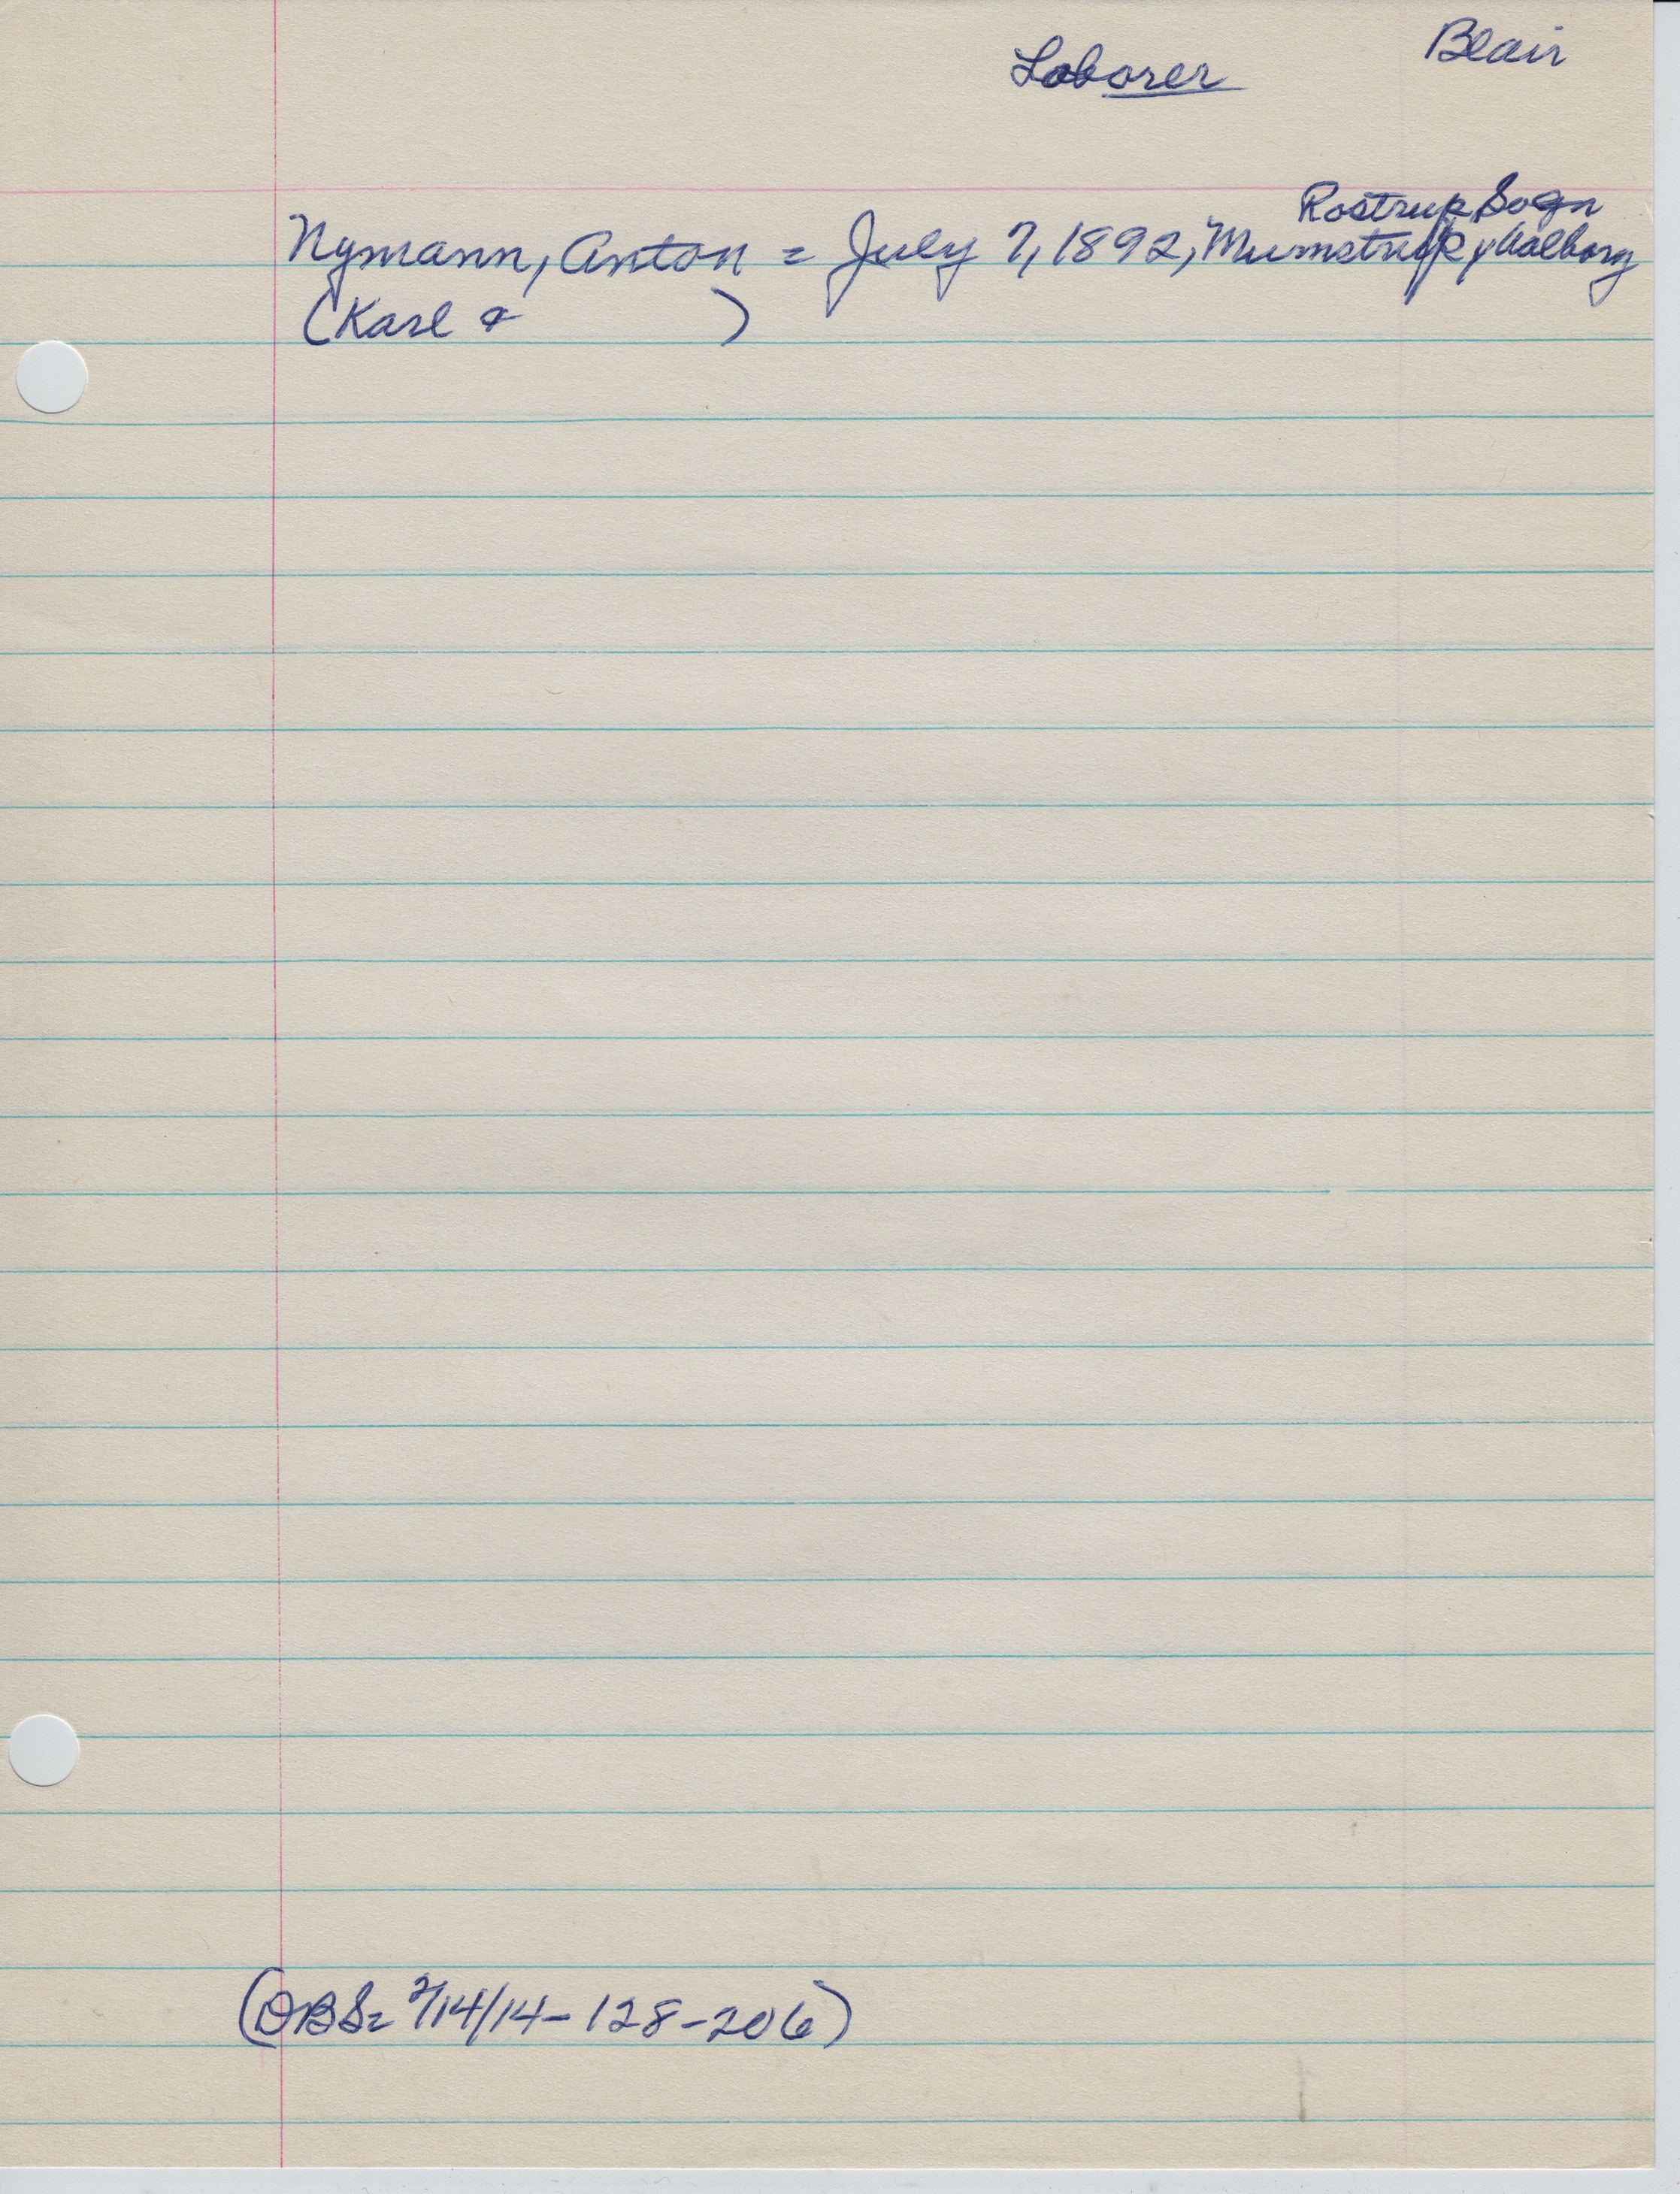 Laborer Blair
Rostrup Sogn
Nymann, Anton = July 7, 1892, Mumstrup, Aalborg
(Karl & )
(DBS= 7/14/14-128-206)